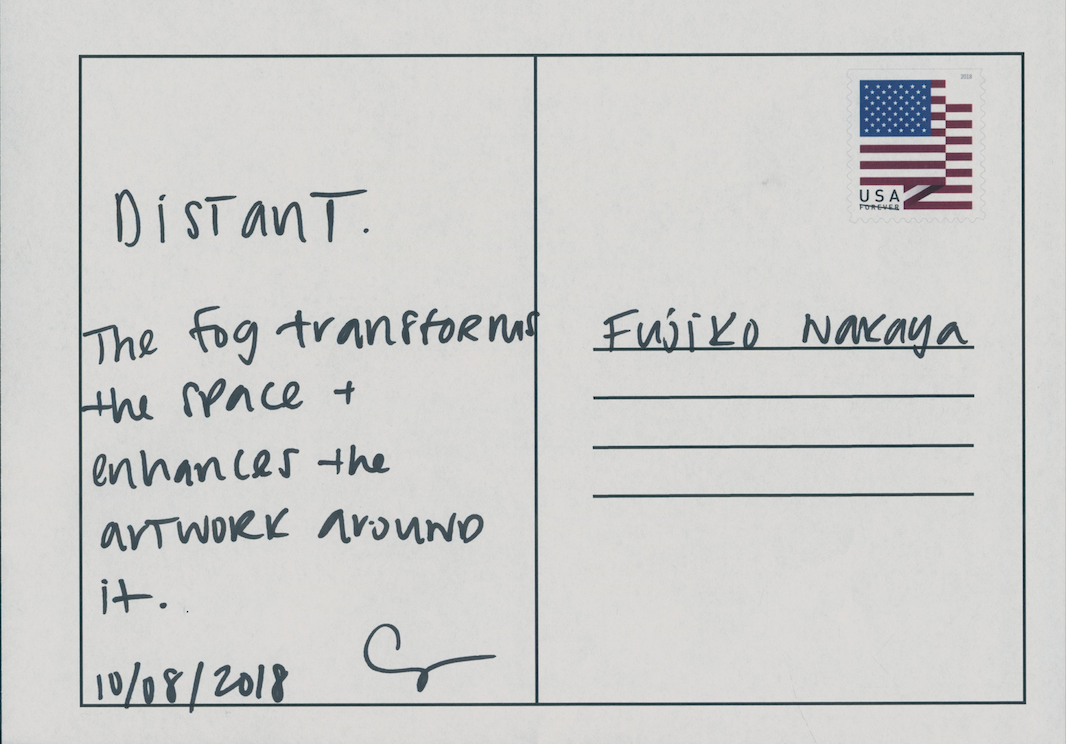 DISTANT.
The fog transforms
the space +
enhances the
artwork around
it.
10/08/2018
2018
USA
FOREVER
Fujiko Nakaya